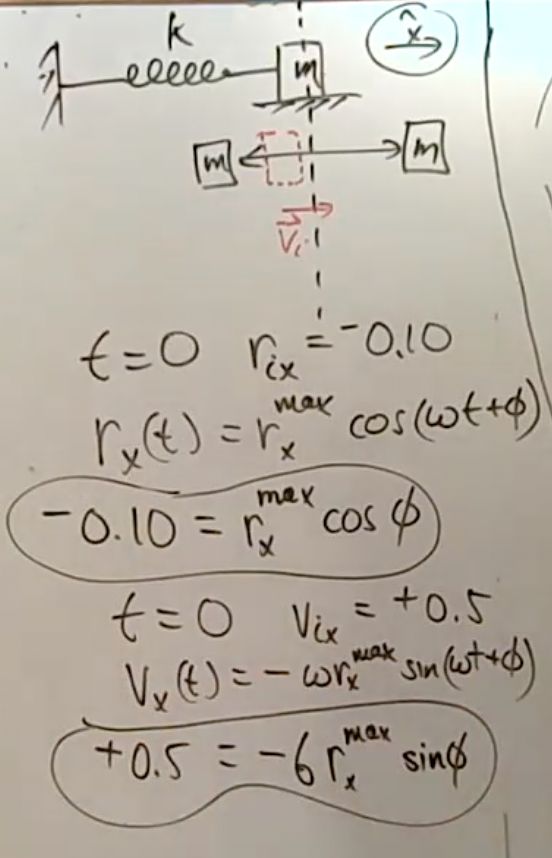 k
m
x̂
m m
v⃗ᵢ
t=0 rᵢₓ = -0.10
rₓ(t) = rₓᵐᵃˣ cos(ωt+ϕ)
-0.10 = rₓᵐᵃˣ cos ϕ
t=0 vᵢₓ = +0.5
vₓ(t) = -ωrₓᵐᵃˣ sin(ωt+ϕ)
+0.5 = -6 rₓᵐᵃˣ sinϕ